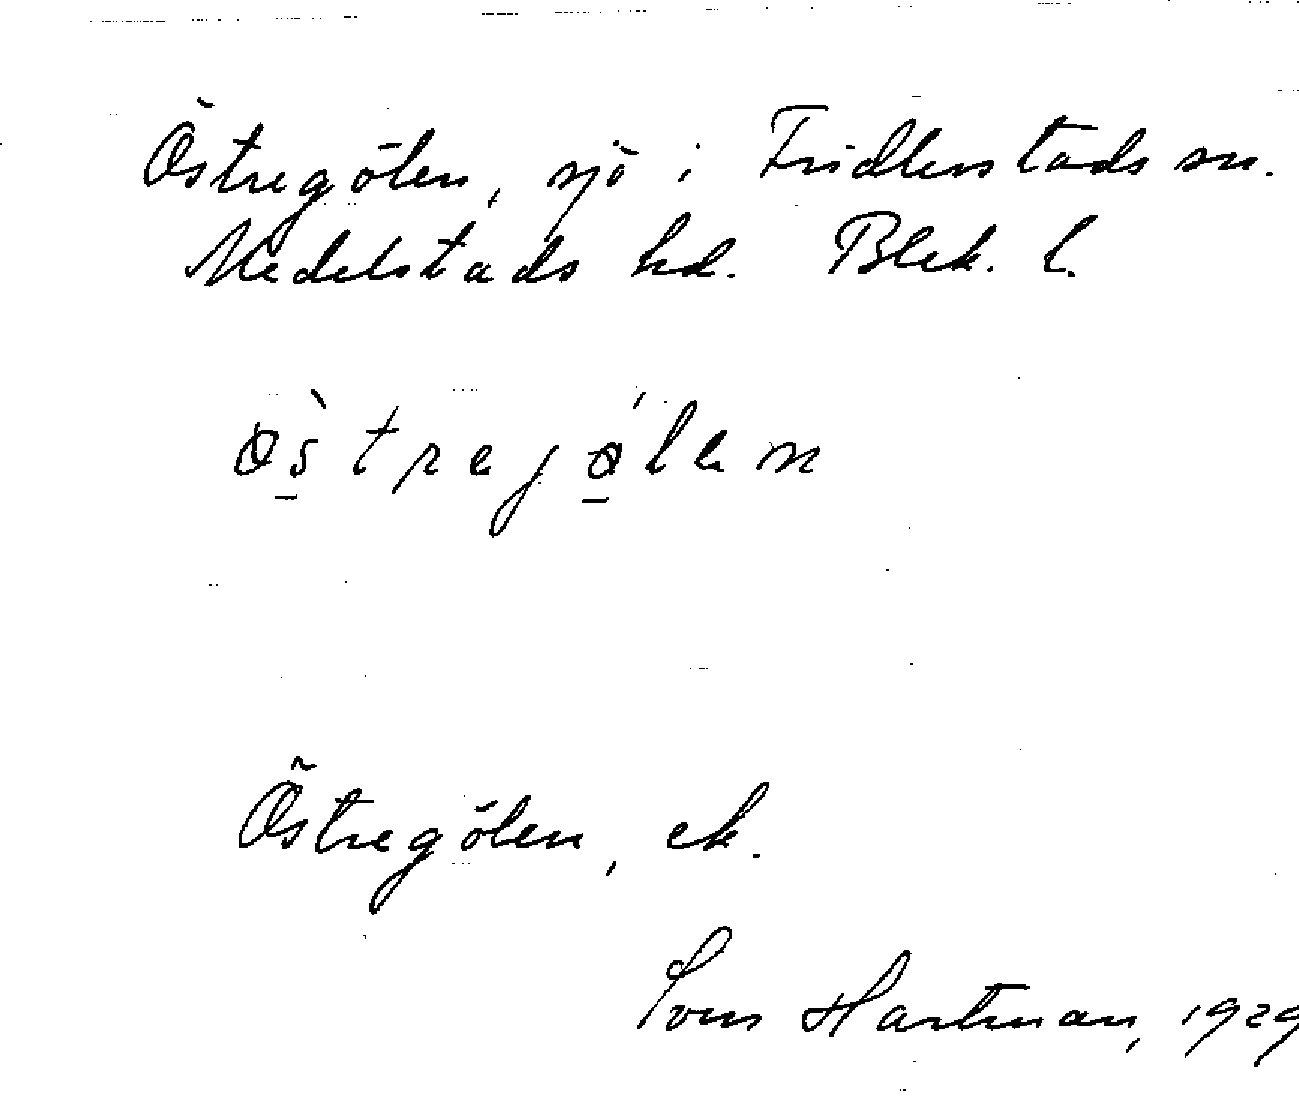 Östregölen, sjö i Fridlevstads sn.
Medelstads hd. Blek. l.
øs̱̀trejǿ̱len
Östregölen, ek.
Sven Hartman, 1929